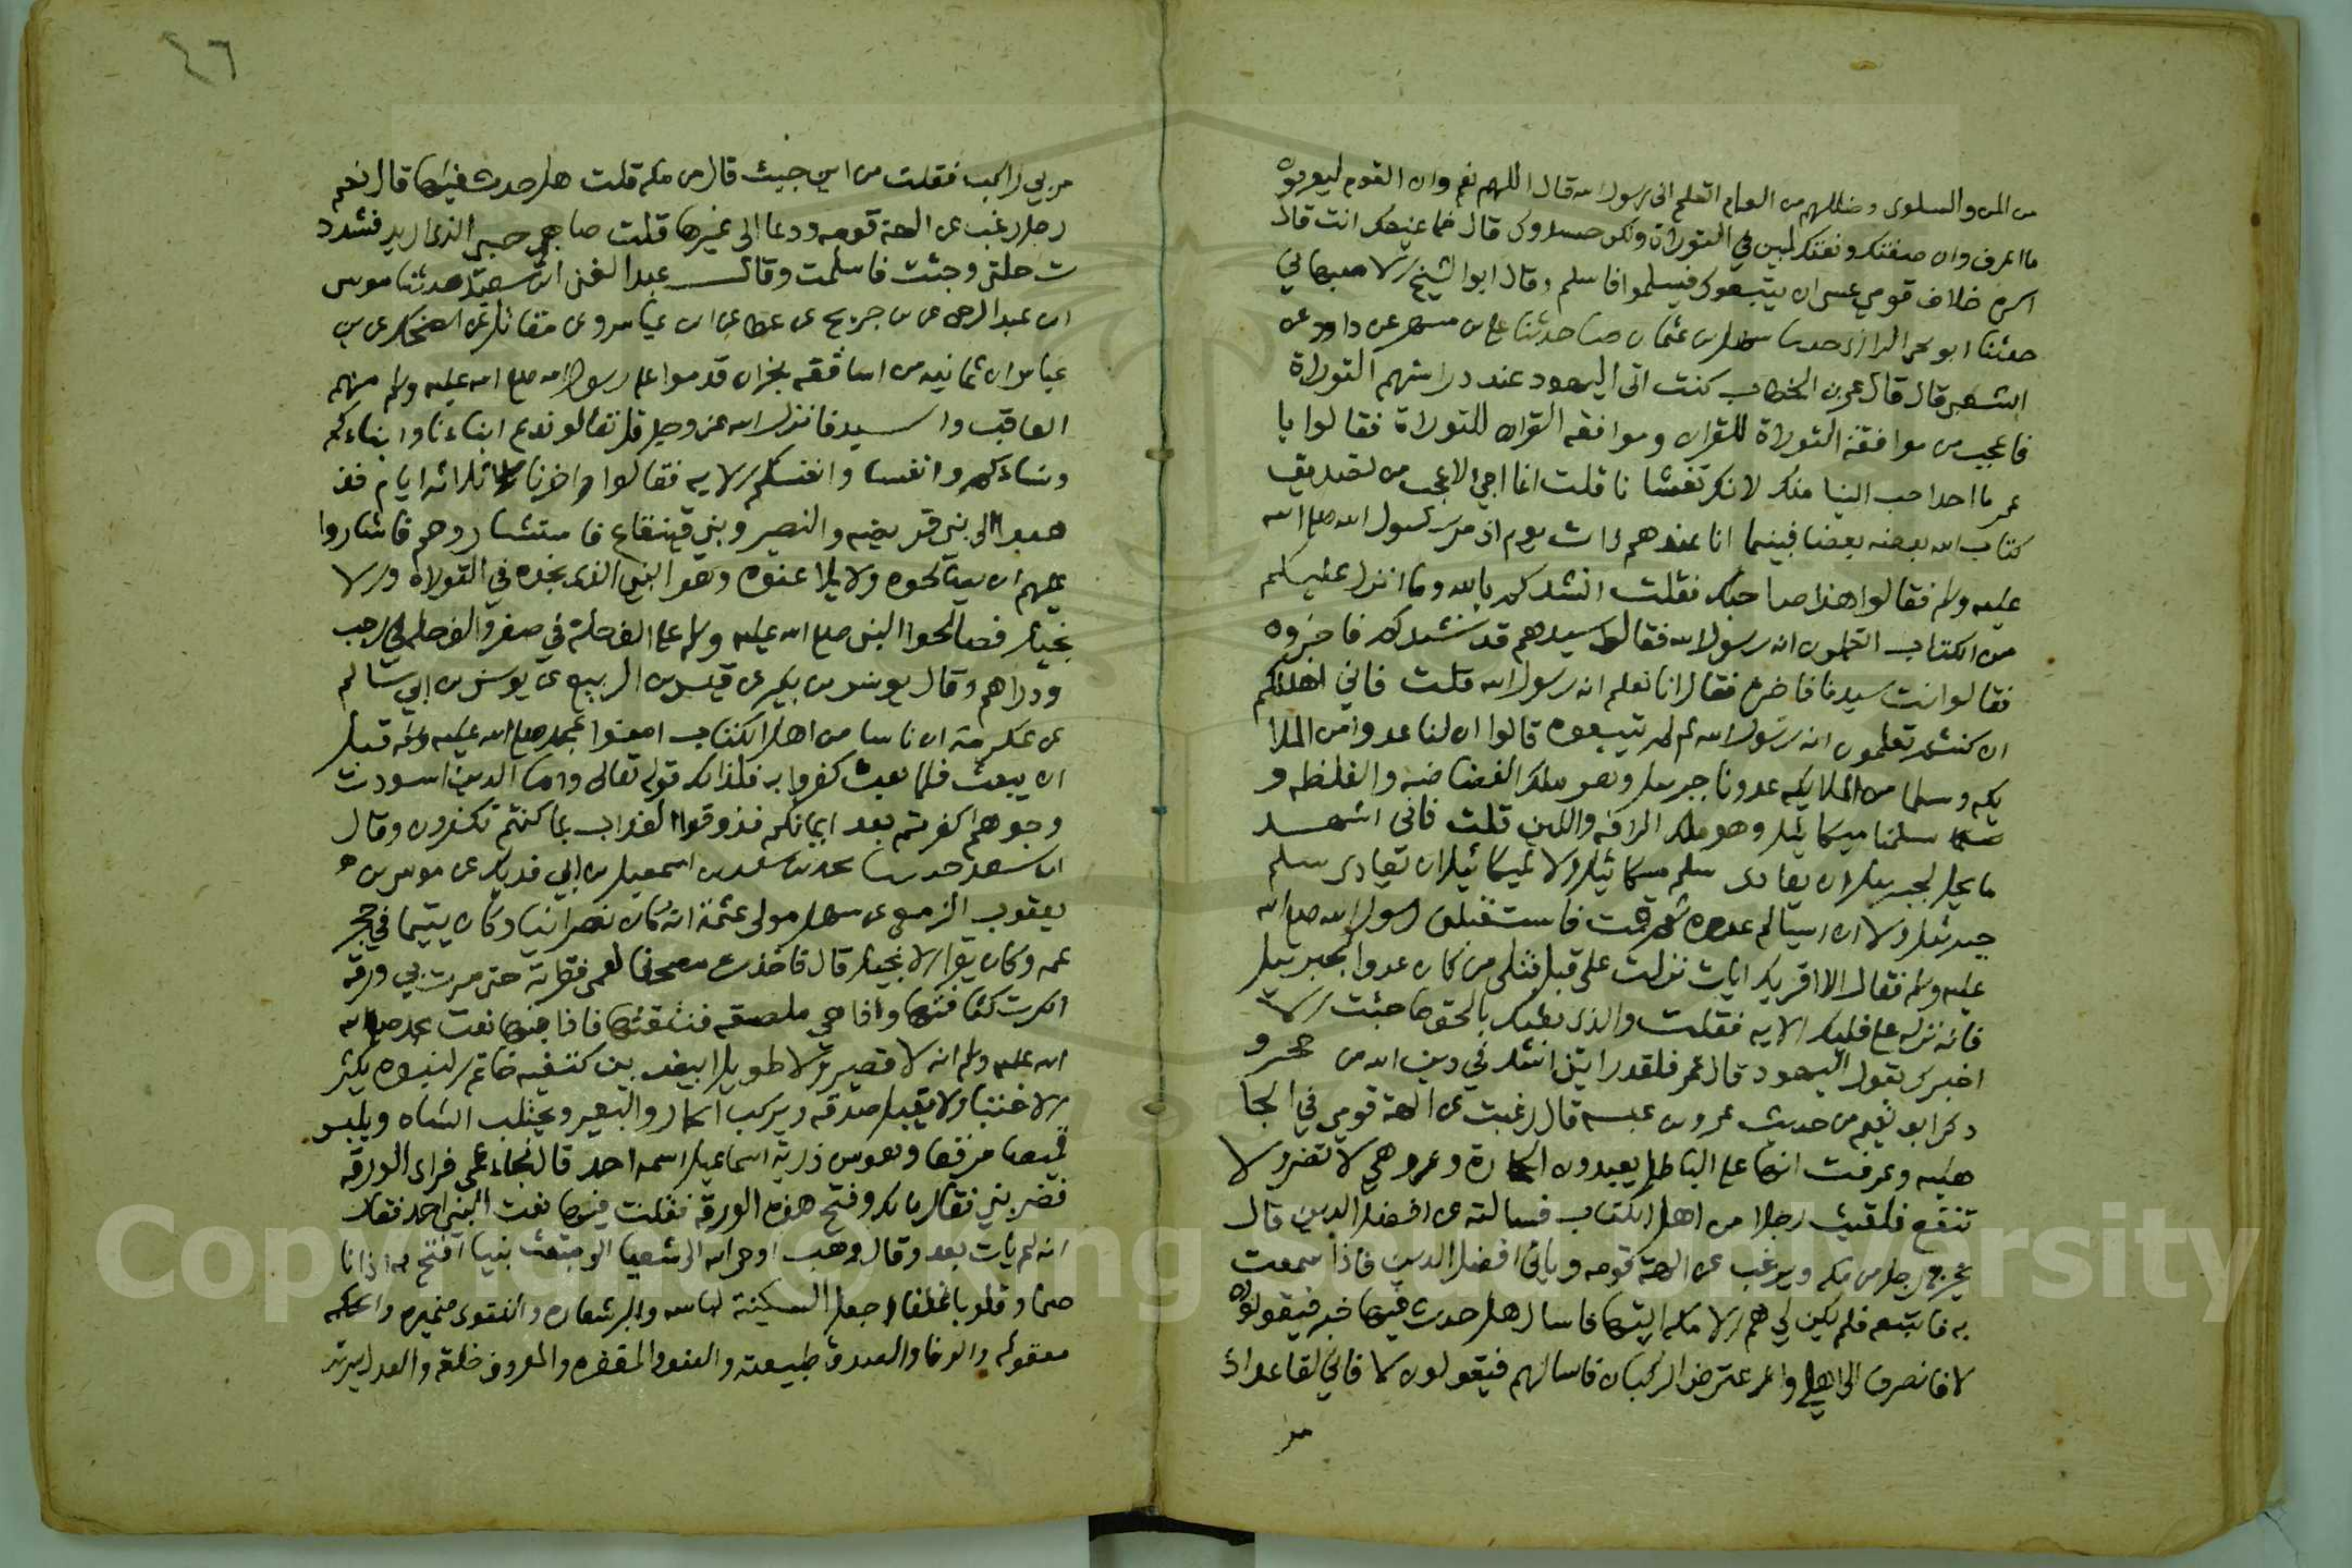 من المن والسلوى وظللهم من الغمام اتعلم انى رسول الله قال اللهم نعم وان القوم ليعرفون
ما اعرف وان صفتك ونعتك لمبين في التوراة ولكن حسدوك قال فما يمنعك انت قال
اكره خلاف قومي عسى ان يتبعوك فيسلموا فاسلم وقال ابو الشيخ الاصبهاني
حدثنا ابو يحيى الرازى حدثنا سهل بن عثمان حدثنا على بن مسهر عن داود عن
الشعبي قال قال عمر بن الخطاب كنت اتى اليهود عند دراستهم التوراة
فاعجب من موافقة التوراة للقران وموافقة القران للتوراة فقالوا يا
عمر ما احد احب الينا منك لانك تغشانا قلت انما اجي لاعجب من تصديق
كتاب الله بعضه بعضا فبينما انا عندهم ذات يوم اذ مر رسول الله صلى الله
عليه وسلم فقالوا هذا صاحبك فقلت انشدكم بالله وما انزل عليكم
من الكتاب اتعلمون انه رسول الله فقال سيدهم قد نشدكم فاخبروه
فقالوا انت سيدنا فاخبره فقال انا نعلم انه رسول الله قلت فاني اهلككم
ان كنتم تعلمون انه رسول الله ثم لم تتبعوه قالوا ان لنا عدوا من الملا
يكه وسلما من الملايكه عدونا جبريل وهو ملك الفضاضه والغلظه و
سلمنا ميكائيل وهو ملك الرافه واللين قلت فانى اشهد
ما يحل لجبريل ان يعادى سلم ميكائيل ولا لميكائيل ان يعادى سلم
جبرئيل ولا ان يسالم عدوه ثم قمت فاستقبلنى رسول الله صلى الله
عليه وسلم فقال الا اقريك ايات نزلت على قبل فتلى من كان عدوا لجبريل
فانه نزله على قلبك الايه فقلت والذى بعثك بالحق ما جئت الا
اخبرك بقول اليهود قال عمر فلقد رايتنى اشد في دين الله من حجر و
ذكر ابو نعيم من حديث عمرو بن عبسه قال رغبت عن الهة قومي في الجا
هليه وعرفت انها على الباطل يعبدون الحجارة وهي لا تضر ولا
تنفع فلقيت رجلا من اهل الكتاب فسالته عن افضل الدين قال
يخرج رجل من مكه ويرغب عن الهة قومه وياتى افضل الدين فاذا سمعت
به فاتبعه فلم يكن لي هم الا مكه اتيها فاسال هل حدث فيها خبر فيقولون
لا فانصرف الى اهلي واعترض الركبان فاسالهم فيقولون لا فاني لقاعد اذ
مر
٤٦
مر بي راكب فقلت من اين جيت قال من مكه قلت هل حدث فيها قال نعم
رجل رغب عن الهة قومه ودعا الى غيرها قلت صاحبي الذى اريد فشدد
ت رحلتى وجئت فاسلمت وقال عبد الغنى بن سعيد حدثنا موسى
ابن عبد الرحمن عن ابن جريح عن عطا عن ابن عباس وعن مقاتل عن الضحاك عن ابن
عباس ان ثمانيه من اساقفه نجران قدموا على رسول الله صلى الله عليه وسلم منهم
العاقب والسيد فانزل الله عز وجل قل تعالو ندع ابناءنا وابناءكم
ونساءكم وانفسنا وانفسكم الايه فقالوا اخرنا ثلاثه ايام فذ
هبوا الى بني قريضه والنضير وبني قينقاع فاستشاروهم فاشاروا
عليهم ان يصالحوه ولا يلاعنوه وهو النبي الذى نجده في التوراه والا
نجيل فصالحوا النبي صلى الله عليه وسلم على الف حلة في صفر والف حلة في رجب
ودراهم وقال يونس بن بكير عن قيس بن الربيع عن يونس بن ابي سالم
عن عكرمة ان ناسا من اهل الكتاب امنوا بمحمد صلى الله عليه وسلم قبل
ان يبعث فلما بعث كفروا به فلذلك قوله تعالى واما الذين اسودت
وجوههم اكفرتم بعد ايمانكم فذوقوا العذاب بما كنتم تكفرون وقال
ابن سعد حدثنا محمد بن اسمعيل بن ابي فديك عن موسى بن
يعقوب الزمعى عن سهل مولى عثمة انه كان نصرانيا وكان يتيما في حجر
عمه وكان يقرا الانجيل قال فاخذت مصحفا لعمى فقراته حتى مرت بي ورقه
انكرت كثافتها واذا هي ملصقه ففتقتها فاذا فيها نعت محمد صلى الله
عليه وسلم انه لا قصير ولا طويل ابيض بين كتفيه خاتم النبوه يكثر
الاحتبا ولا يقبل صدقه ويركب الحمار والبعير ويحتلب الشاه ويلبس
قميصا مرقعا وهو من ذرية اسماعيل اسمه احمد قال فجاء عمى فراى الورقه
فضربني فقال مالك وفتح هذه الورقه فقلت فيها نعت النبي احمد فقال
انه لم يات بعد وقال وهب اوحى الله الى شعيا انى مبتعث نبيا افتح به اذانا
صما وقلوبا غلفا اجعل السكينة لباسه والبر شعاره والتقوى ضميره والحكمه
معقوله والوفا والصدق طبيعته والعفو والمغفره والمعروف خلقه والعدل سيرته